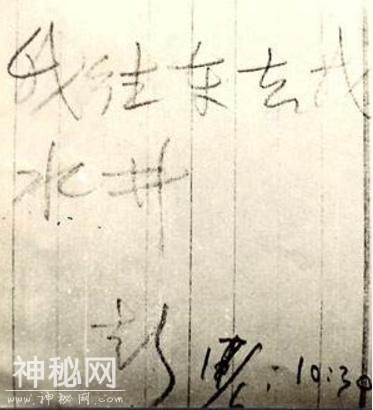 我往东去找
水井
彭 17/6: 10:30
神秘网
www.神秘网.com